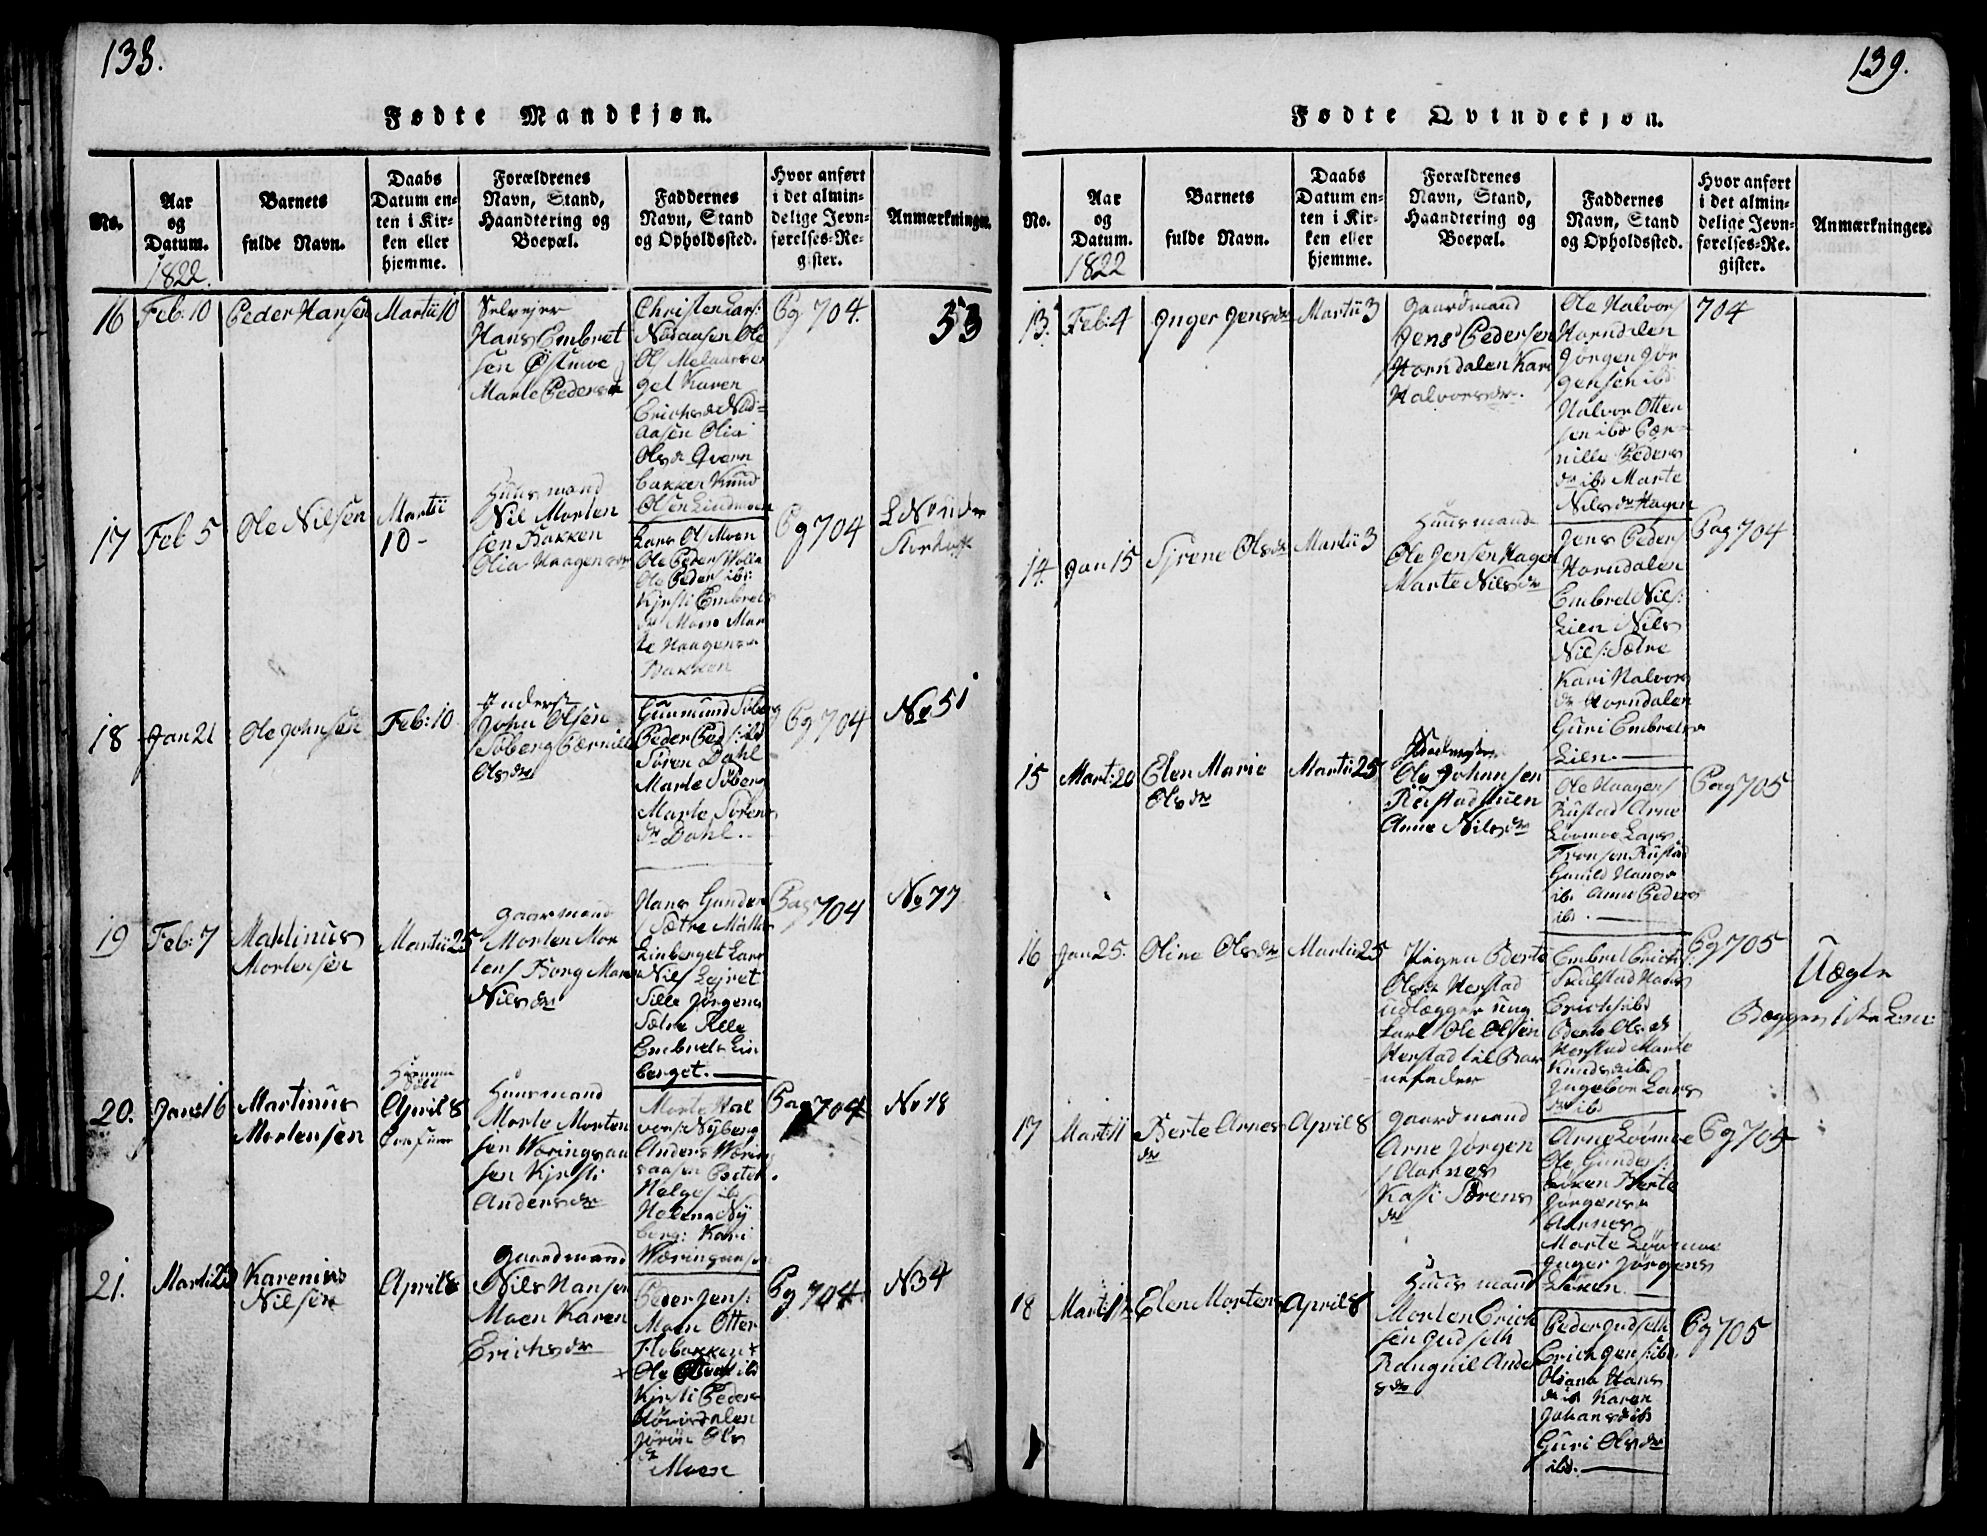 138.
Fødte Mandkjøn.
No.
Aar
og
Datum.
1822.
Barnets
fulde Navn.
Daabs
Datum en-
ten i Kir-
ken eller
hjemme.
Forældrenes
Navn, Stand,
Haandtering og
Boepæl.
Faddernes
Navn, Stand
og Opholdssted.
Hvor anført
i det almin-
delige Jevn-
førelses-Re-
gister.
Anmærkninger.
16
Feb: 10
Peder Hansen
Martii 10
Selvejer
Hans Embret
sen Østmoe
Marte Pedersdr
Christen Lars:
Nordaasen Ole
Ols Melaasber
get Karen
Erichsdr Nord=
aasen Olia
Olsdr Qvern
bakken Knud
Olsen Lindmoen
Pg 704.
53
17
Feb 5
Ole Nilsen
Martii
10-
Huusmand
Nil Morten
sen Bakken
Olia Haagensdr
Lars Ols Moen
Ole Peders Wolla
Ole Peders ibi:
Kjersti Embrets
dr Moen Mar
te Haagensdr
Bakken
Pg 704
18
Jan 21
Ole Johnsen
Feb: 10
Inderst
John Olsen
Søberg Pærnille
Olsdr
Gunmund Søberg
Peder Ped s: ibd
Søren Dahl
Marte Søberg
Marte Sørens
dr Dahl.
Pg 704
No 51
19
Feb: 7
Mathinus
Mortensen
Martii 25
Gaarmand
Morten Mor
tens Borg Maren
Nilsdr
Hans Gunder
s Sætre Mattis
Linberget Lars
Nils Lejret
Sille Jørgens
Sætre Pelle
Embrets Lin
berget.
Pag 704
No 77
20.
Jan 16
Martinus
Mortensen
Hiemme
døbt
April 8
Huusmand
Morte Morten
sen Wæringsaa
sen Kjersti
Andersdr
Morte Hal
vors: Nyberg
Anders Wæring
saasen Peder
Helges ib
Helene Ny
berg: Kari
Wæringsaasen
Pag 704
No 18
21.
Marti 23
Karenius
Nilsen
April 8
Gaardmand
Nils Hansen
Moen Karen
Erichsdr
Peder Jens:
Moen Otter
Flobakken
Ole ibd
Kjersti Peders
Horndalen
Jørøn Ols
dr
Moen
Pg 704
N 34
139.
Fødte Qvindekjøn.
No.
Aar
og
Datum.
1822
Barnets
fulde Navn.
Daabs
Datum en-
ten i Kir-
ken eller
hjemme.
Forældrenes
Navn, Stand,
Haandtering og
Boepæl.
Faddernes
Navn, Stand
og Opholdssted.
Hvor anført
i det almin-
delige Jevn-
førelses-Re-
gister.
Anmærkninger.
13.
Feb: 4
Inger Jensdr
Martii 3
Gaardmand
Jens Pedersen
Horndalen Kari
Halvorsdr.
Ole Halvors
Horndalen
Jørgen Jør
gensen ibd
Halvor Otter
sen ibd Pær
nille Peders
dr ibd Marte
Nilsdr Hagen
704
14.
Jan 15
Sjrene Olsdr
Martii 3
Huusmand
Ole Jensen Hagen
Marte Nilsdr
Jens Peders
Horndalen
Embret Nils:
Lien Nils
Nils: Sætre
Kari Halvors
dr Horndalen
Guri Embretsdr
Lien.
Pag 704
15
Mart: 20
Elen Marie
Olsdr
Martii 25
Ole Johansen
Rustadstuen
Anne Nilsdr
Ole Haagens
Rustad Arne
Loomoe Lars
Tronsen Rustad
Gunild Hansdr
ib: Anne Peders
ibd.
Pag 705
16
Jan 25.
Oline Olsdr
Martii 25
Pigen Berte
Olsdr Herstad
udlægger ung
karl Ole Olsen
Herstad til Bar
nefader
Embret Erichs
Skulstad Hans
Erichs: ibd
Berte Olsdr
Herstad Marte
Knudsdr ib
Ingebor Lars
dr ibd
Pg 705
Uægte
Begges 1ste Leier:
17
Marti 11
Berte Arnes
dr
April 8
Gaardmand
Arne Jørgen
s Aarnes
Kasi Sørens
dr
Arne Loomoe
Ole Gunders:
Løken Berte
Jørgensdr
Aarnes
Marte Loomoe
Inger Jørgens
Løken
Pg 705
18
Mart: 12
Elen Mortens
April 8
Huusmand
Morten Erich
sen Judseth
Rangnil Ander
sdr
Peder Judseth
Erich Jens: ibd.
Oliana Hans
dr ib Karen
Johansdr ib
Guri Olsdr
ibd.
Pg 705